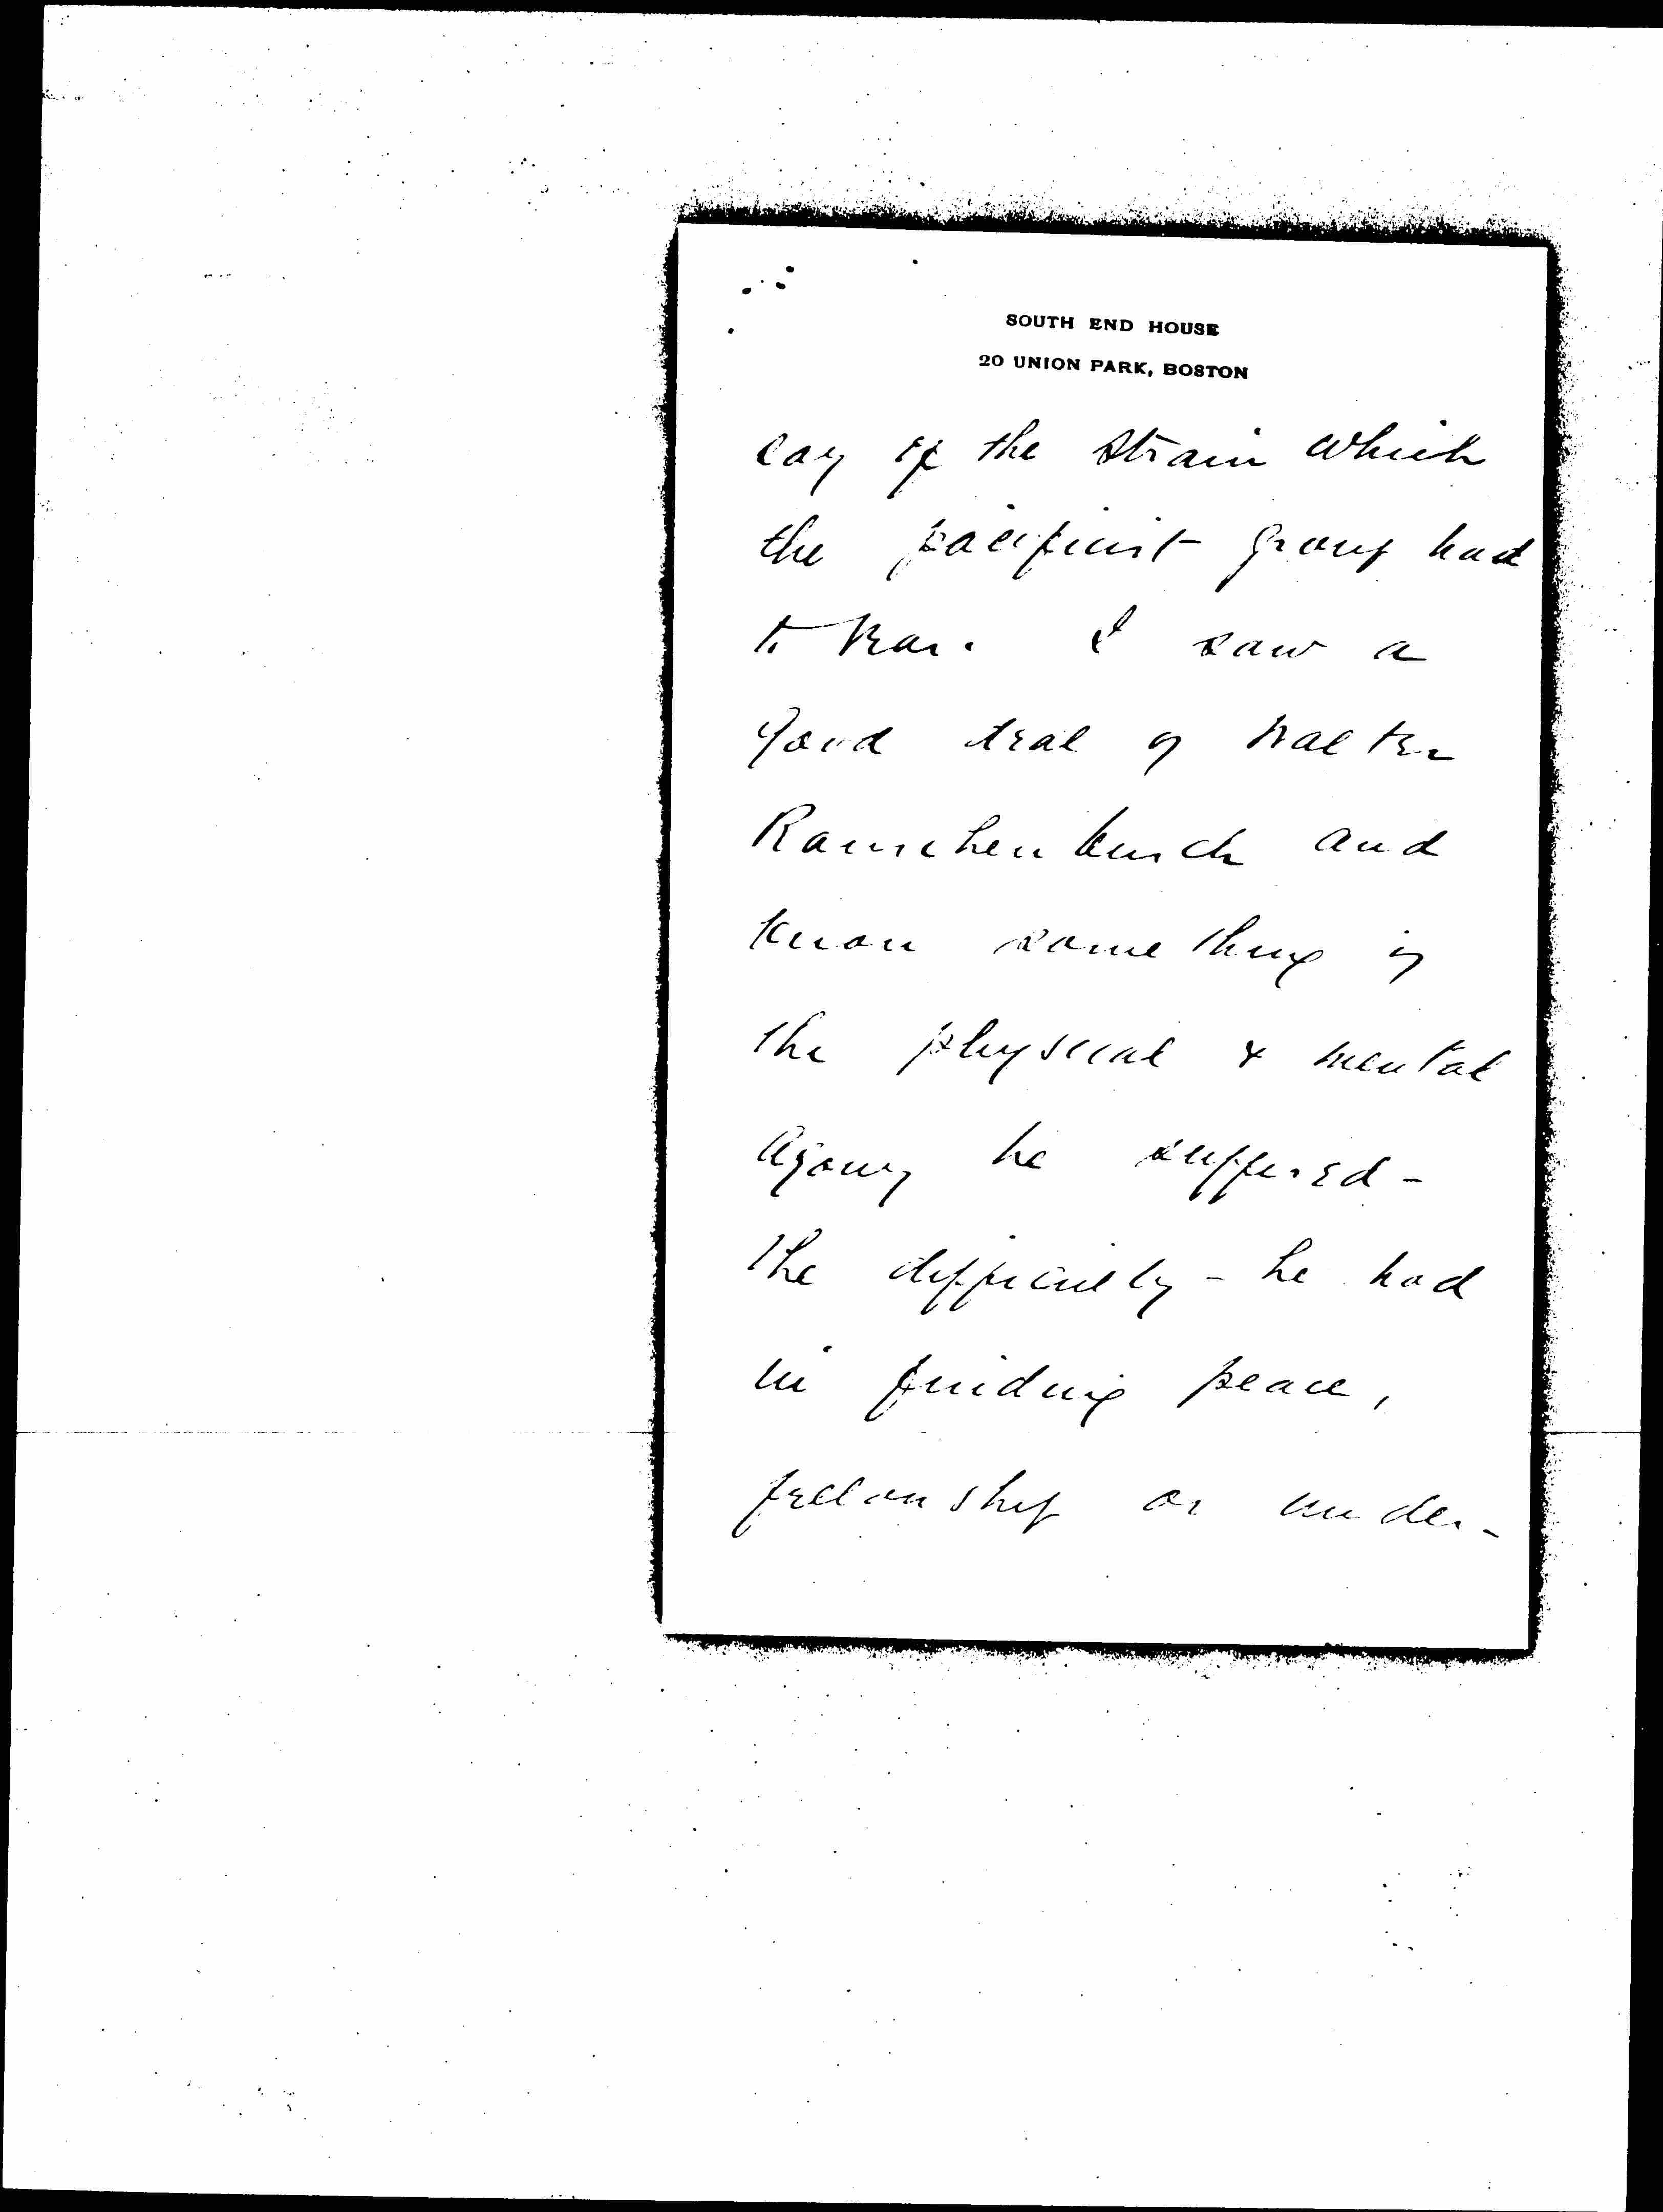 SOUTH END HOUSE
20 UNION PARK, BOSTON
say of the strain which
the pacificist group had
to bear. I saw a
good deal of Walter
Rauschenbusch and
know something of
the physical & mental
agony he suffered -
the difficulty - he had
in finding peace,
fellowship or under-